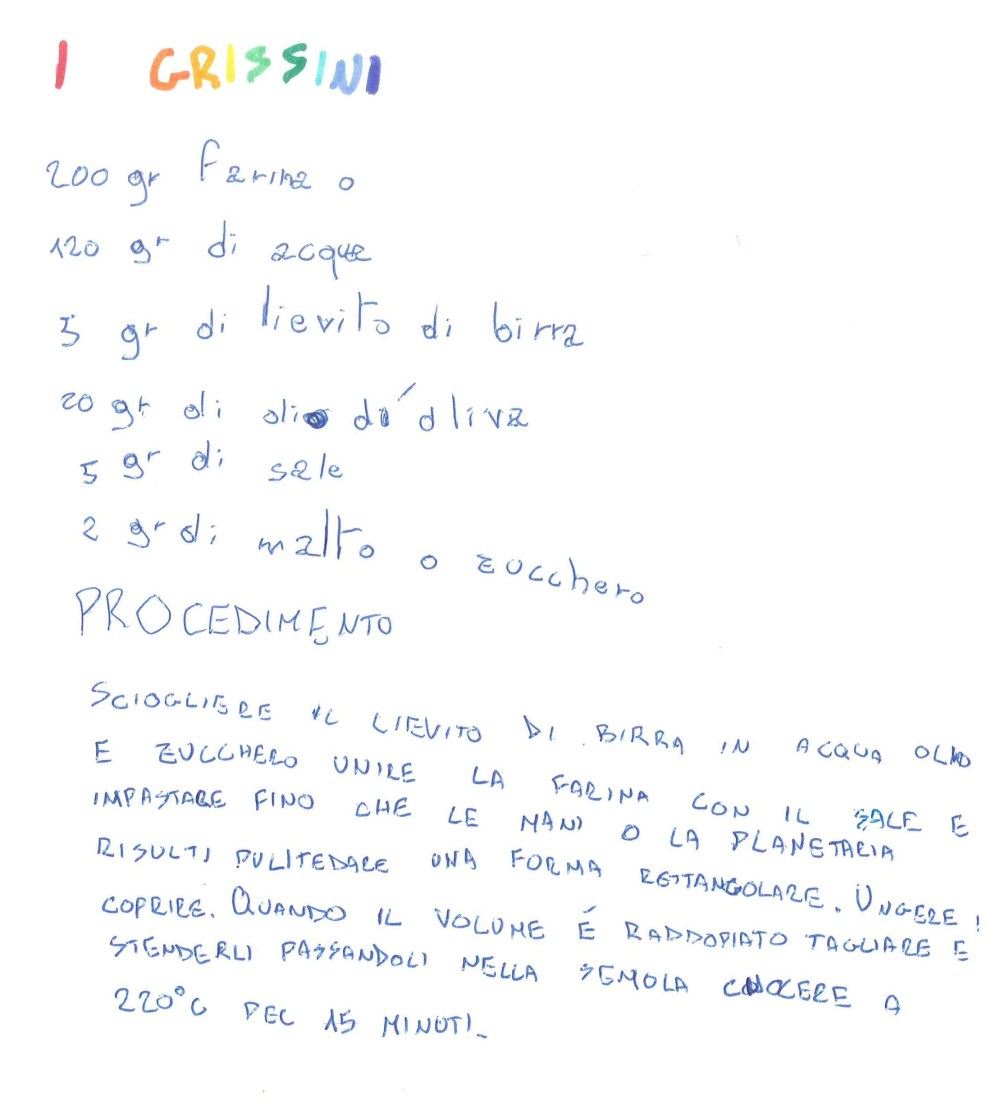 I GRISSINI
200 gr farina o
120 gr di acqua
5 gr di lievito di birra
20 gr di olio d'oliva
5 gr di sale
2 gr di malto o zucchero
PROCEDIMENTO
SCIOGLIERE IL LIEVITO DI BIRRA IN ACQUA OLIO
E ZUCCHERO UNIRE LA FARINA CON IL SALE E
IMPASTARE FINO CHE LE MANI O LA PLANETARIA
RISULTI PULITEDARE UNA FORMA RETTANGOLARE. UNGERE !
COPRIRE. QUANDO IL VOLUME É RADDOPIATO TAGLIARE E
STENDERLI PASSANDOLI NELLA SEMOLA CUOCERE A
220°C PER 15 MINUTI.